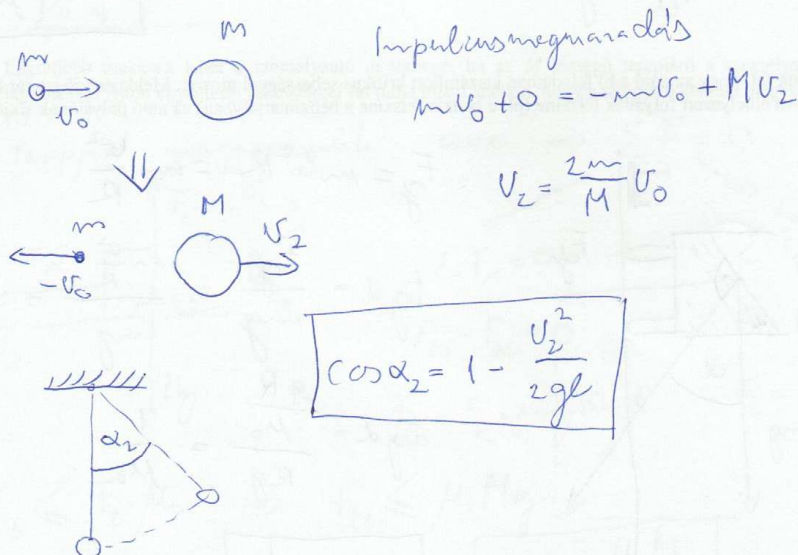 m v₀
M
Impulzusmegmaradás
mv₀ + 0 = -mv₀ + Mv₂
v₂ = 2m/M v₀
m -v₀
M v₂
cos α₂ = 1 - v₂²/2gl
α₂